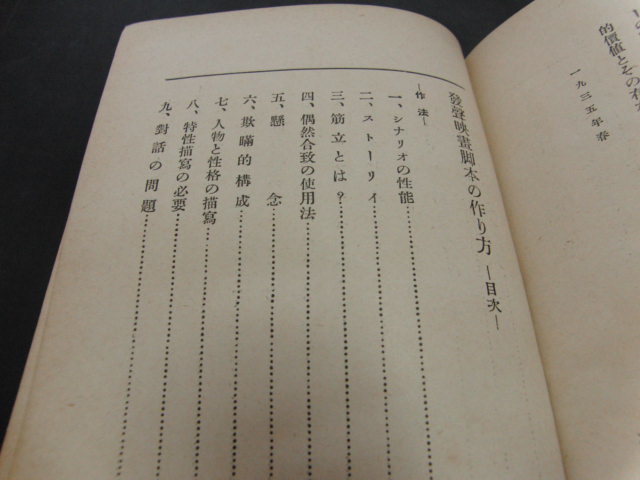 的價値とその
一九三五年春
發聲映畫脚本の作り方 ―目次―
―作法―
一、シナリオの性能
二、ストーリイ
三、筋立とは?
四、偶然合致の使用法
五、懸念
六、欺瞞的構成
七、人物と性格の描寫
八、特性描寫の必要
九、對話の問題